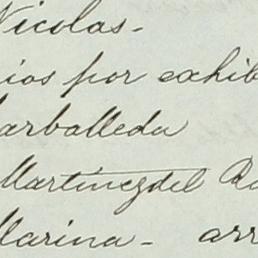 Nicolas-
ios por exhib
Carballeda
Martinez del Ra
Marina - arr